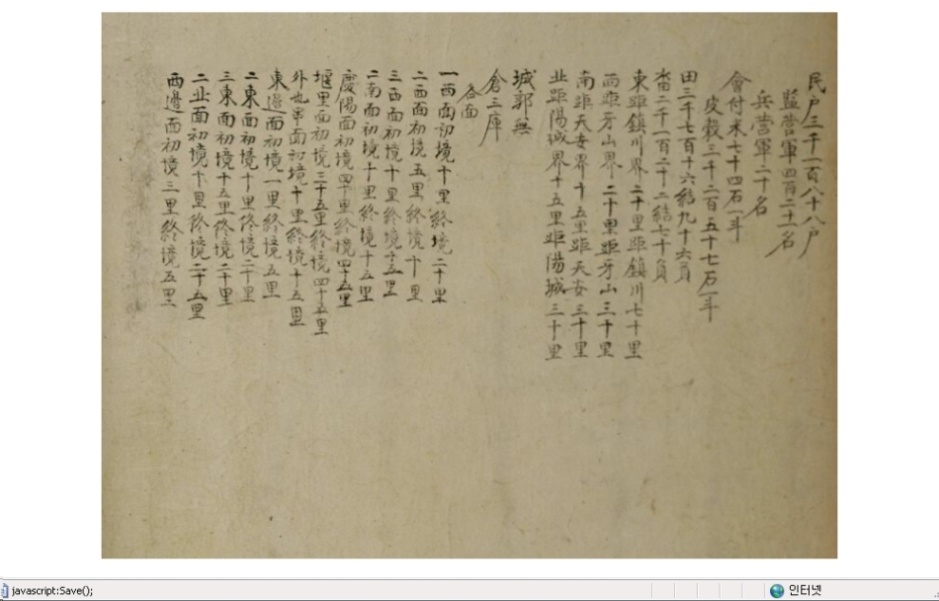 民戶三千一百八十八戶
監營軍四百二十名
兵營軍二十名
會付米七十四石一斗
皮穀三千二百五十七石一斗
田三千七百十六結九十六負
畓二千一百二十二結七十負
東距鎭川界二十里距鎭川七十里
西距牙山界二十里距牙山三十里
南距天安界十五里距天安三十里
北距陽城界十五里距陽城三十里
城郭無
倉三庫
各面
一西面初境十里終境二十里
二西面初境五里終境十里
三西面初境十里終境十五里
二南面初境十里終境十五里
慶陽面初境四十里終境四十五里
堰里面初境三十五里終境四十五里
外也串面初境十里終境十五里
東邊面初境一里終境五里
二東面初境十里終境二十里
三東面初境十五里終境二十里
二北面初境十里終境二十五里
西邊面初境三里終境五里
javascript:Save();
인터넷